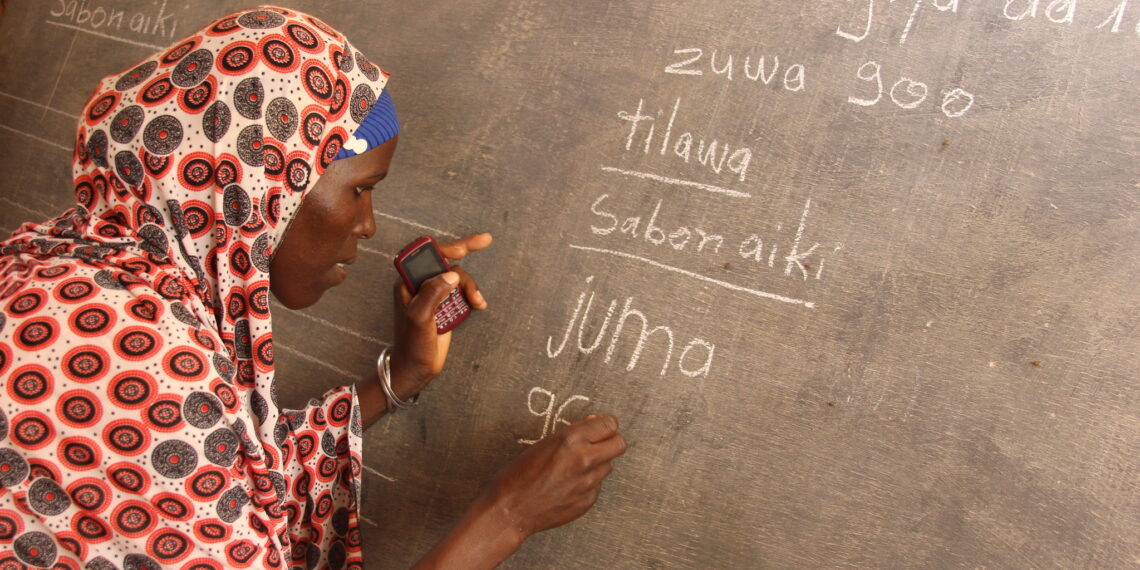 Sabon aiki
zuwa goo
tilawa
Sabon aiki
juma